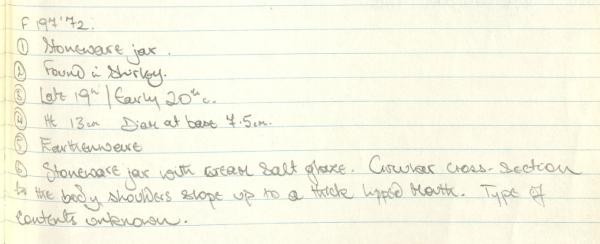 F 197'72.
① Stoneware jar.
② Found in Shirley.
③ Late 19th / Early 20th c.
④ Ht 13cm Diam at base 7.5cm.
⑤ Earthenware
⑥ Stoneware jar with cream salt glaze. Circular cross-section
to the body, shoulders slope up to a thick lipped mouth. Type of
contents unknown.